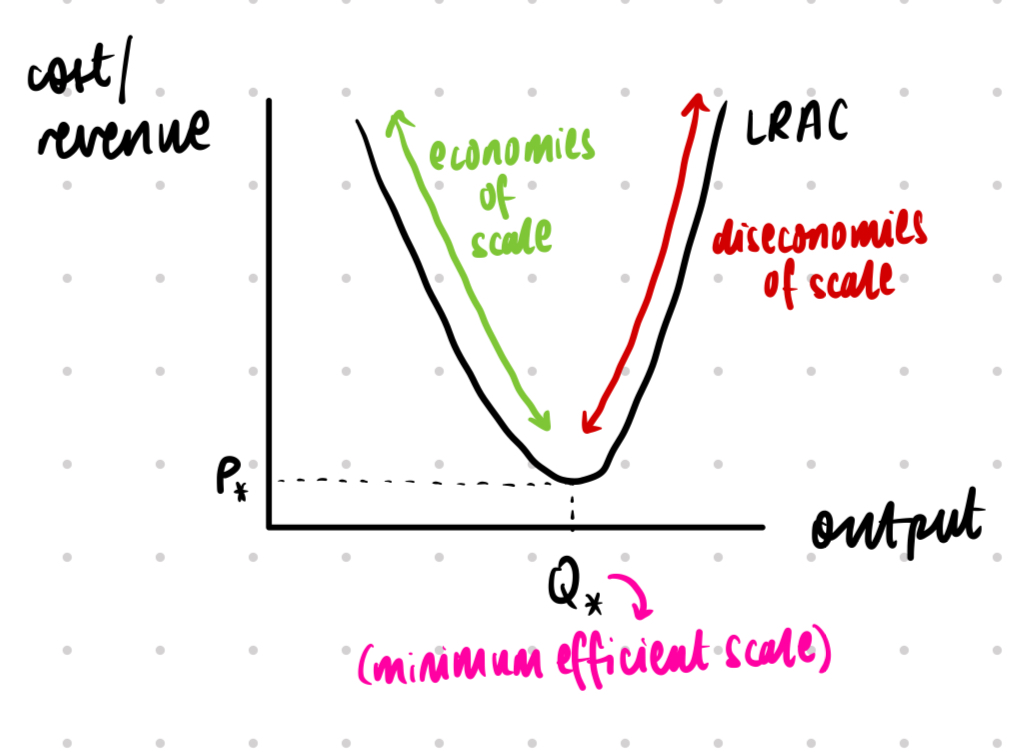 cost/
revenue
economies
of
scale
LRAC
diseconomies
of scale
P*
output
Q*
(minimum efficient scale)